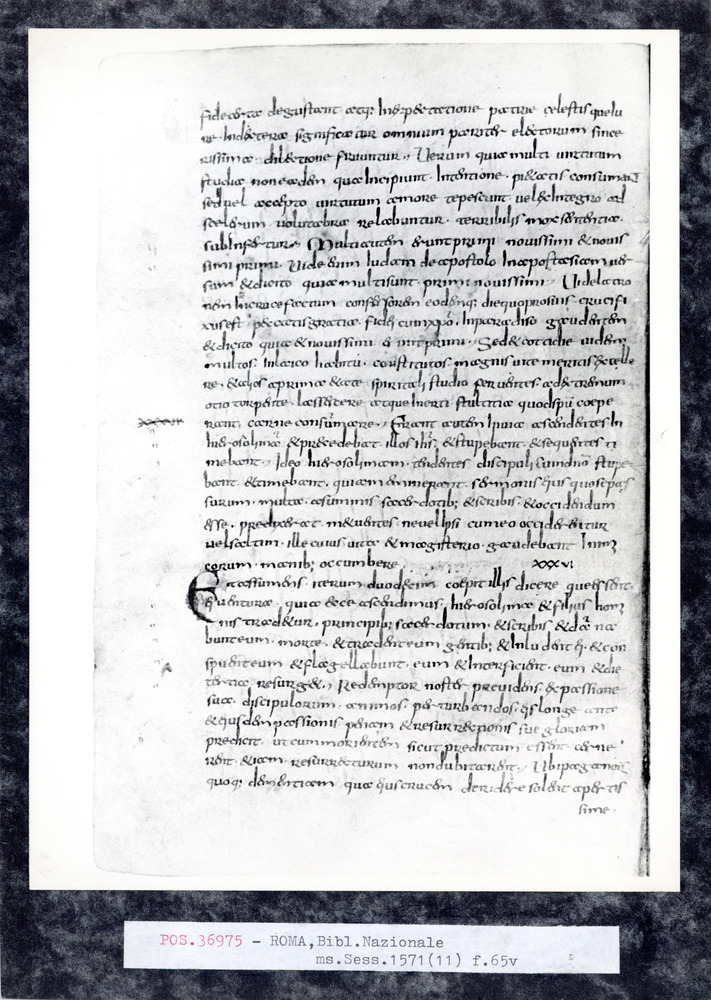 degustant atq; Inexpectatione patrie celestis quelu
re. Indextera significatur omnium pariter electorum since
rissima. dilectione fruuntur. Uerum quia multi uirtutum
studia non eadem qua Incipiunt. Intentione. pietatis consumant
sed uel accepto uirtutum amore tepescunt. uel ex Integro ad
scelerum uolutabra relabuntur. terribilis mox sententia.
subInfertur. Multi autem erunt primi nouissimi & nouis
simi primi. Uide enim Iudam de apostolo Inapostasiam uer
sum & dicito quia multi sunt primi nouissimi. Uide latro
nem Incruce factum confessorem eodemq; die quo prosuis crucifi
xus est peccatis gratia fidei cum xpo. Inparadiso gaudentem
& dicito quia & nouissimi erint primi. Sed & cotidie uidem
multos. Inlaico habitu. constitutos magnis uite meritis excelle
re. & alios a prima etate spiritali studio feruentes. ad extremum
otio torpente. lassescere atque Inerti stultitia quod spu coepe
xxxv rant. carne consumare. Erant autem Inuia ascendentes In
hierosolima & precedebat. illos ihs. & stupebant. & sequentes ti
mebant. Ideo hierosolimam. tendentes discipuli cum dno stupe
bant. & timebant. quia meminerant. sermonis eius quo se pas
surum. multa. a summis sacerdotib; & scribis. & occidendum
esse. predixerat. metuentes ne uel Ipsi cum eo occiderentur
uel saltim. ille cuius uita & magisterio. gaudebant Inimi
corum. manib; occumberet. xxxvi
Et assumens. iterum duodecim coepit illis dicere que essent.
ei uentura. quia ecce ascendimus. hierosolima & filius homi
nis tradetur. principib; sacerdotum. & scribis & da na
bunt eum. morte. & tradent eum gentib; & Inludent ei. & con
spuent eum & flagellabunt. eum & Interficient. eum & die
tertia resurget. Redemptor noster preuidens. ex passione
sua. discipulorum. animos perturbandos. eis longe ante
& eiusdem passionis penam & resurrectionis sue gloriam
predicit. ut cum morientem sicut predictum essent. cerne
rent. & iam. resurrecturum non dubitarent. Ubi paganorum
quoq; dementiam qua eius crucem deridere solent apertis
sime.
POS.36975 - ROMA,Bibl.Nazionale
ms.Sess.1571(11) f.65v